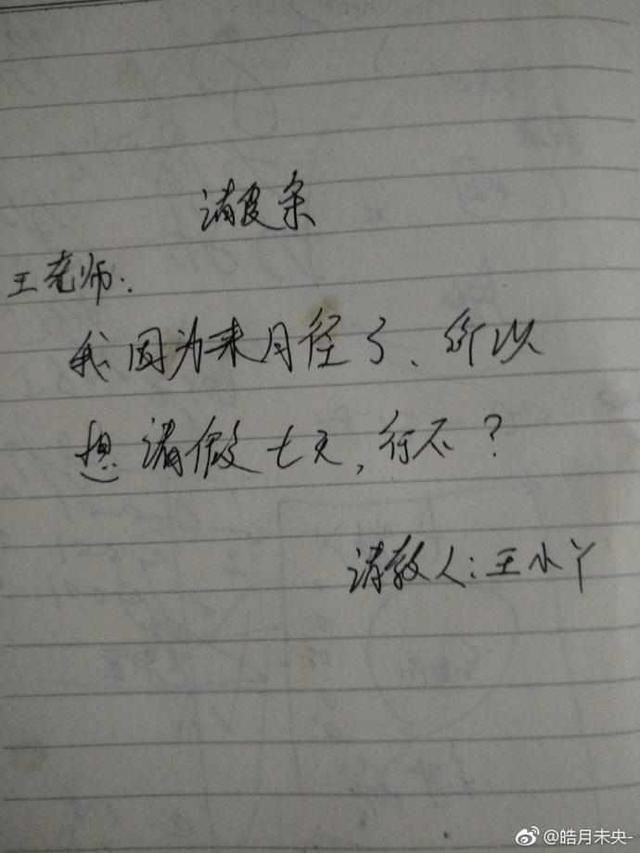 请叚条
王老师:
我因为来月径了、所以
想请假七天,行不?
请教人:王小丫
@皓月未央-